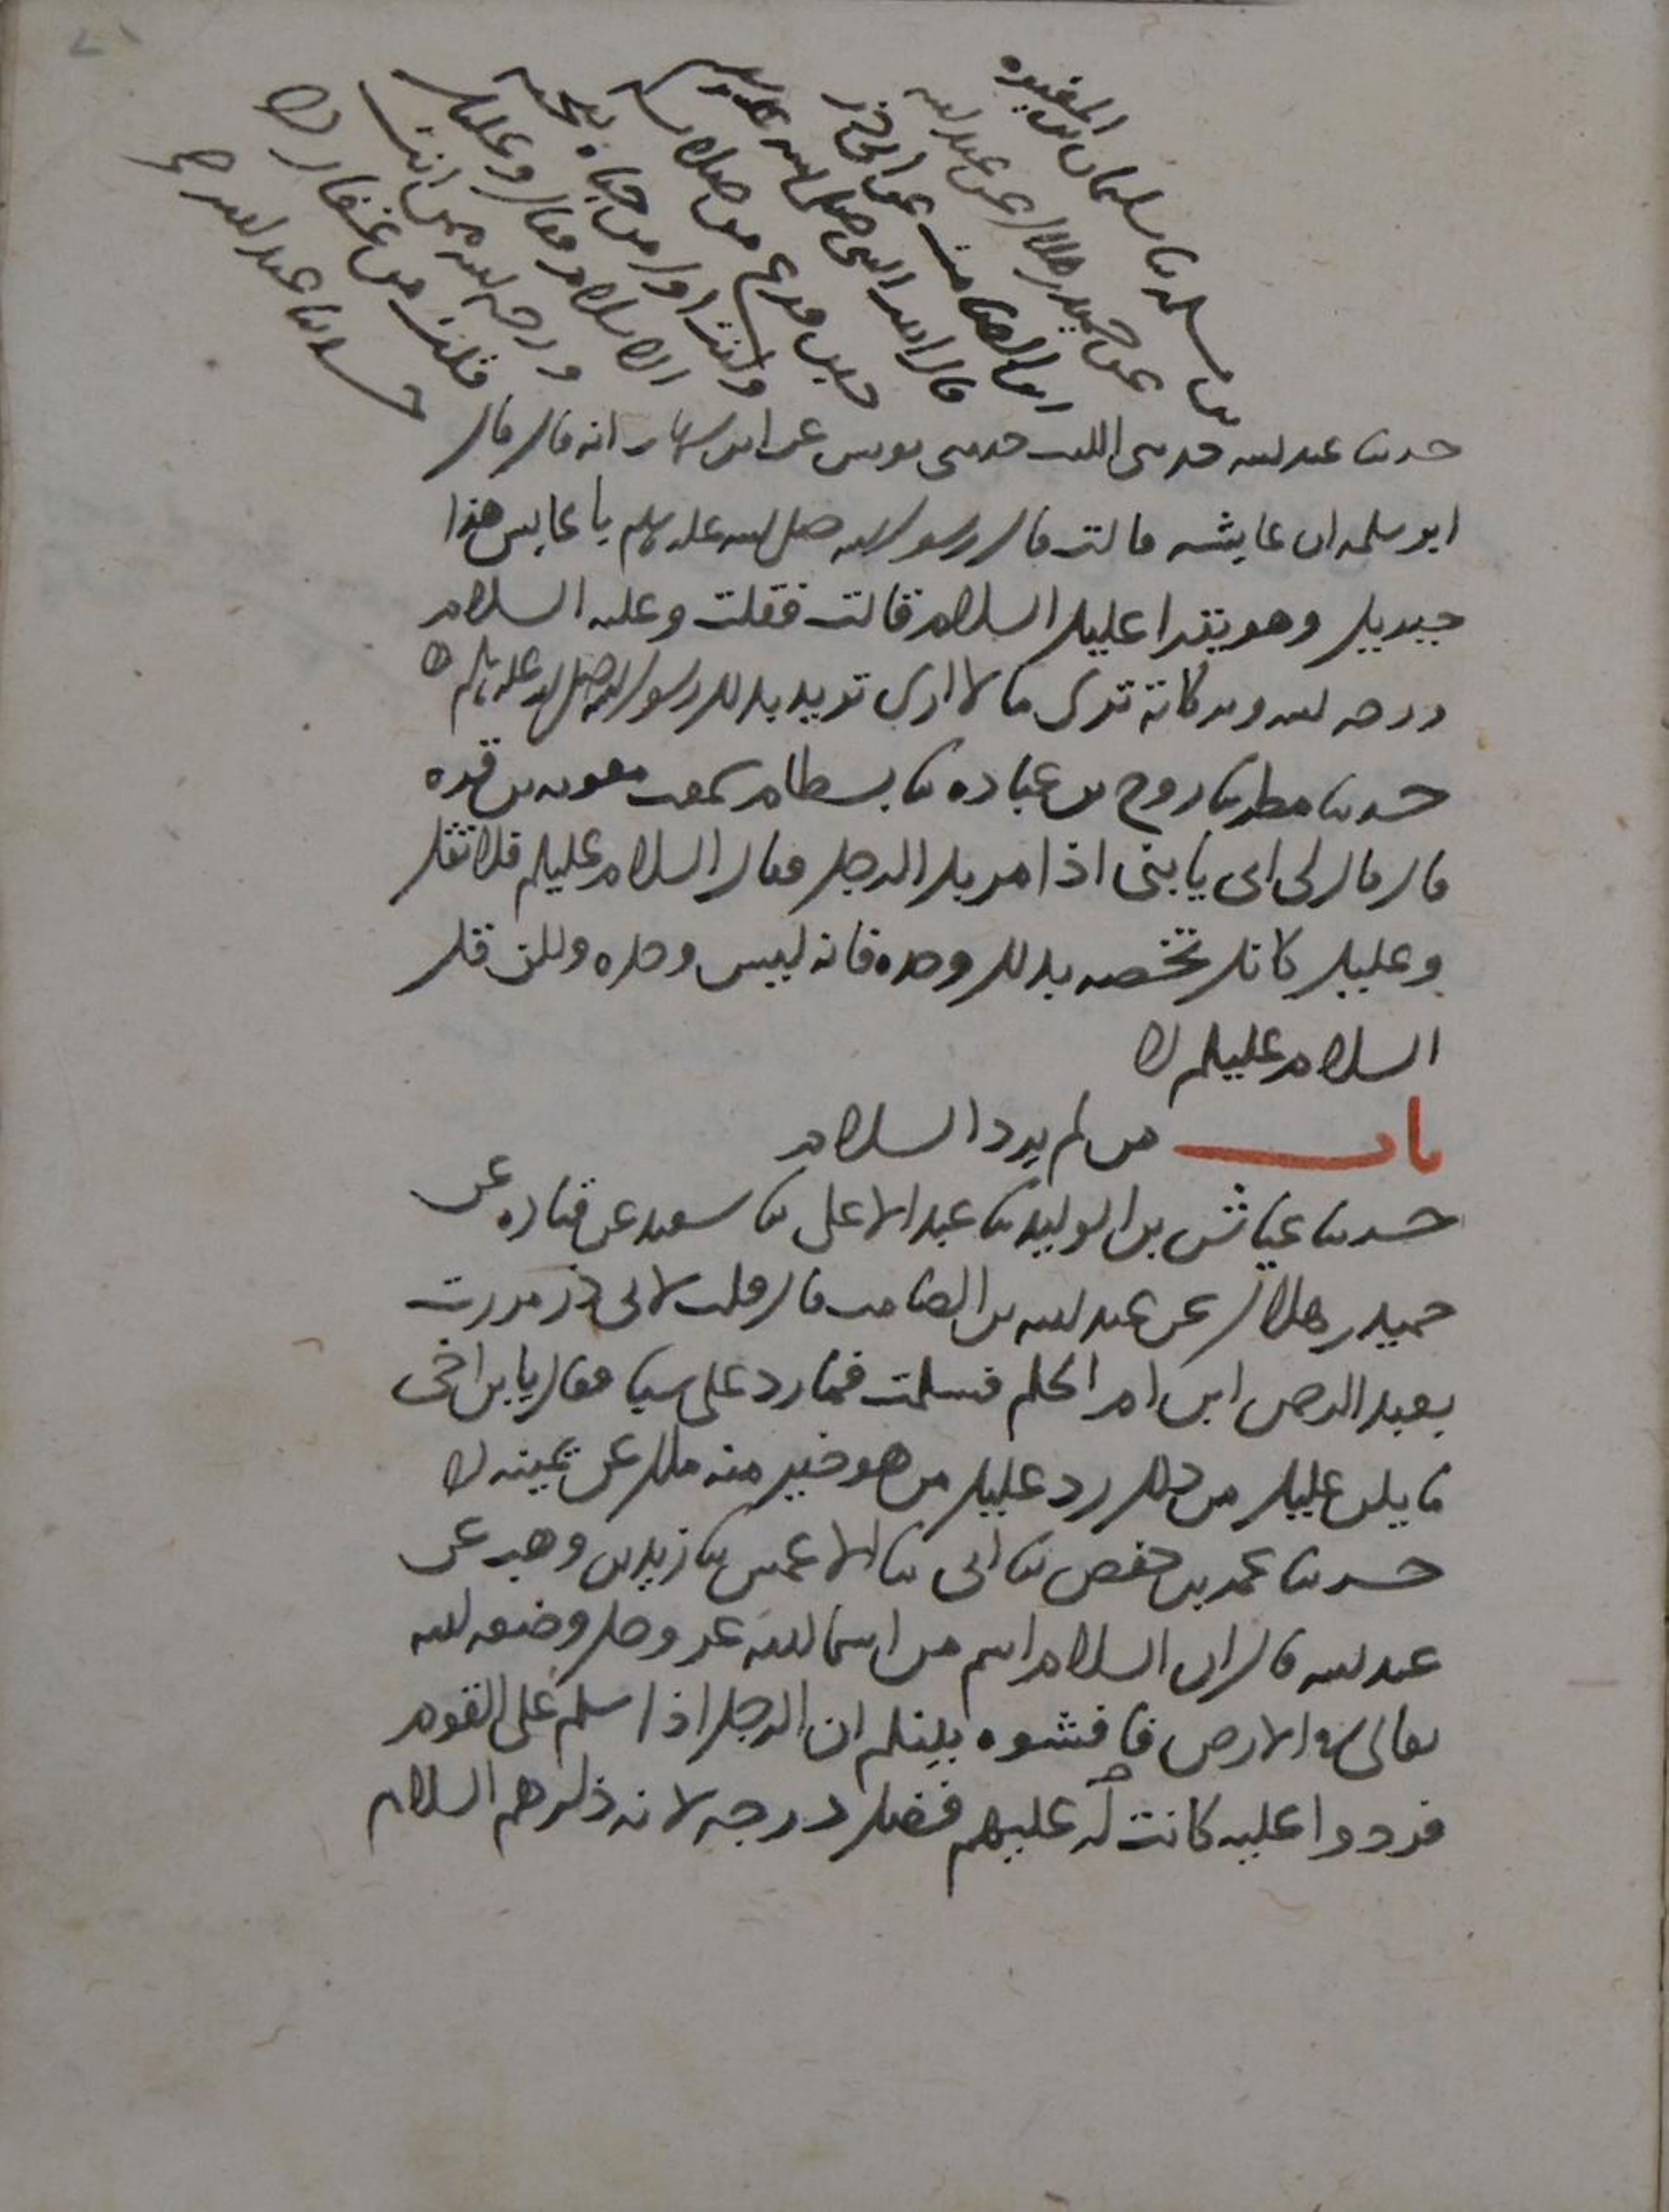 بن مسلمه نا سليمان بن المغيره
عن حميد بن هلال عن عبد الله
بن الصامت عن ابى ذر
قال اتيت النبى صلى الله عليه وسلم
حين فرغ من صلاته
وكنت اول من حياه بتحيه
الاسلام فقال وعليك
ورحمه الله ممن انت
قلت من غفار ه
حدثنا عبد الله
حدثنا عبد الله حدثنى الليث حدثنى يونس عن ابن شهاب انه قال قال
ابو سلمه ان عايشه قالت قال رسول الله صلى الله عليه وسلم يا عايش هذا
جبريل وهو يقرا عليك السلام قالت فقلت وعليه السلام
ورحمه الله وبركاته ترى ما لا ارى تريد بذلك رسول الله صلى الله عليه وسلم ه
حدثنا مطر نا روح بن عباده نا بسطام سمعت معويه بن قره
قال قال لى ابى يا بنى اذا مر بك الرجل فقال السلام عليكم فلا تقل
وعليك كانك تخصه بذلك وحده فانه ليس وحده ولكن قل
السلام عليكم ه
باب من لم يرد السلام
حدثنا عياش بن الوليد نا عبد الاعلى نا سعيد عن قتاده عن
حميد بن هلال عن عبد الله بن الصامت قال قلت لابى ذر مررت
بعبد الرحمن ابن ام الحكم فسلمت فما رد على شيا فقال يا بن اخى
ما يكون عليك من ذلك رد عليك من هو خير منه ملك عن يمينه ه
حدثنا عمر بن حفص نا ابى نا الاعمش نا زيد بن وهب عن
عبد الله قال ان السلام اسم من اسما الله عز وجل وضعه الله
تعالى فى الارض فافشوه بينكم ان الرجل اذا سلم على القوم
فردوا عليه كانت له عليهم فضل درجه لانه ذكرهم السلام